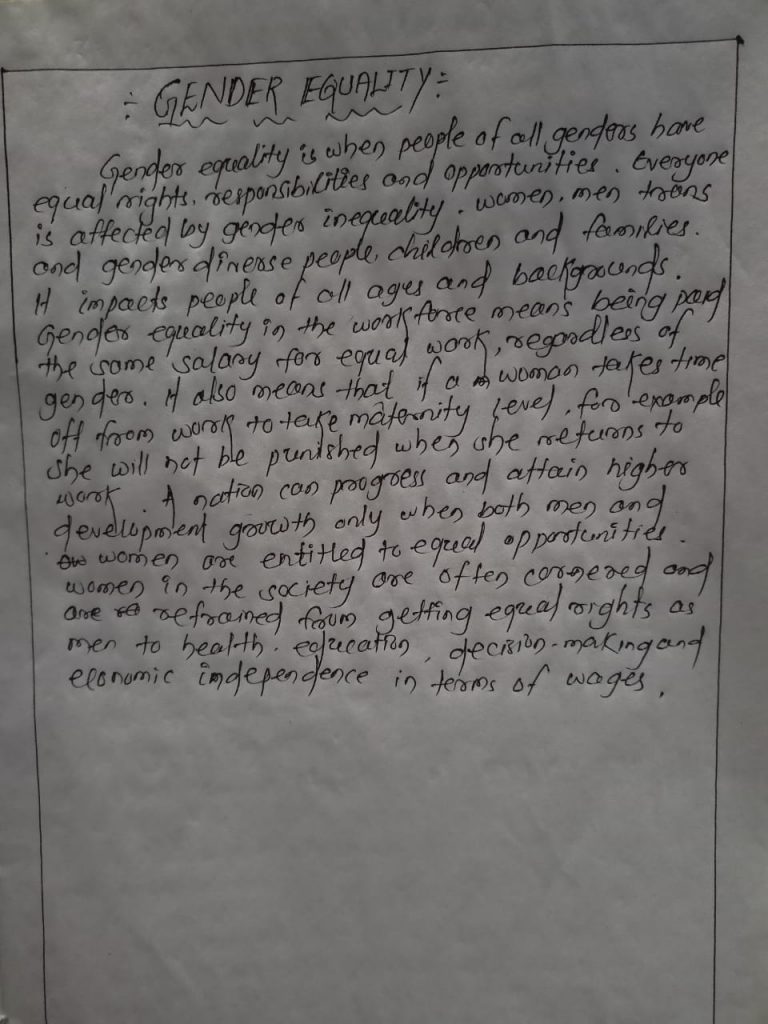 ÷ GENDER EQUALITY ÷
Gender equality is when people of all genders have
equal rights, responsibilities and opportunities. Everyone
is affected by gender inequality. women, men trans
and gender diverse people, children and families.
It impacts people of all ages and backgrounds.
Gender equality in the workforce means being paid
the same salary for equal work, regardless of
gender. It also means that if a woman takes time
off from work to take maternity level, for example
she will not be punished when she returns to
work. A nation can progress and attain higher
development growth only when both men and
women are entitled to equal opportunities.
women in the society are often cornered and
are refrained from getting equal rights as
men to health. education, decision-making and
economic independence in terms of wages.